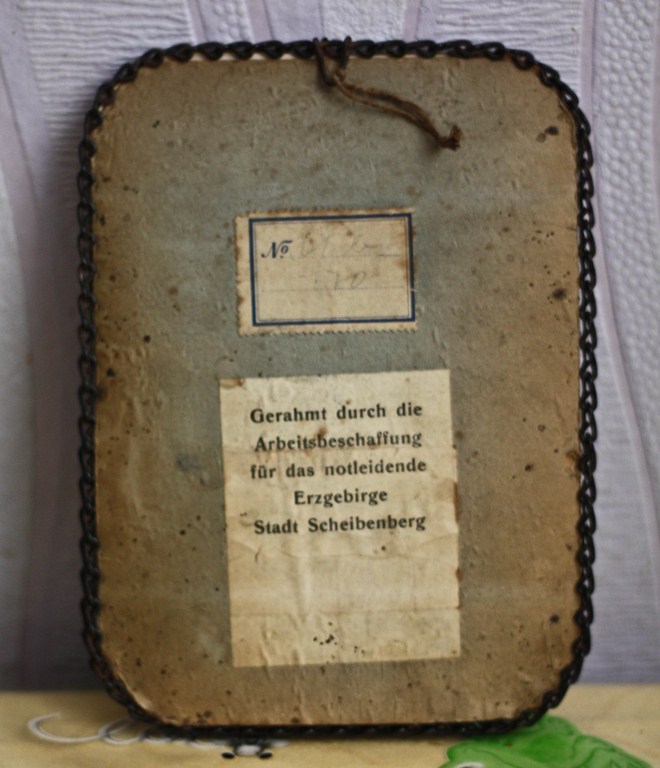 No
Gerahmt durch die
Arbeitsbeschaffung
für das notleidende
Erzgebirge
Stadt Scheibenberg